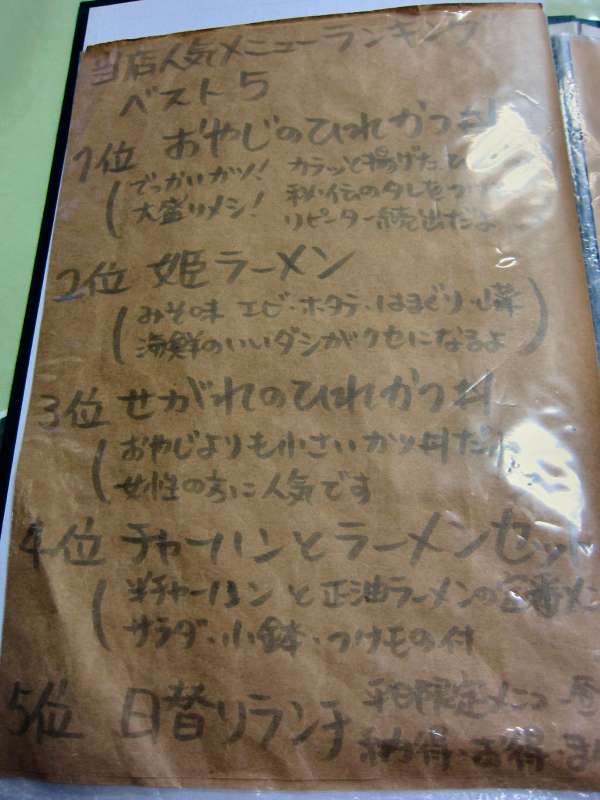 当店人気メニューランキング
ベスト5
1位 おやじのひれかつ丼
でっかいカツ! カラッと揚げた
大盛りメシ! 秘伝のタレを
リピーター続出だよ
2位 姫ラーメン
(みそ味 エビ・ホタテ・はまぐり・山菜)
海鮮のいいダシがクセになるよ
3位 せがれのひれかつ丼
(おやじよりも小さいカツ丼だ
女性の方に人気です
4位 チャーハンとラーメンセット
(半チャーハン と 正油ラーメンの定番メ
サラダ・小鉢・つけもの付
5位 日替りランチ 平日限定メニュー
納得・お得・